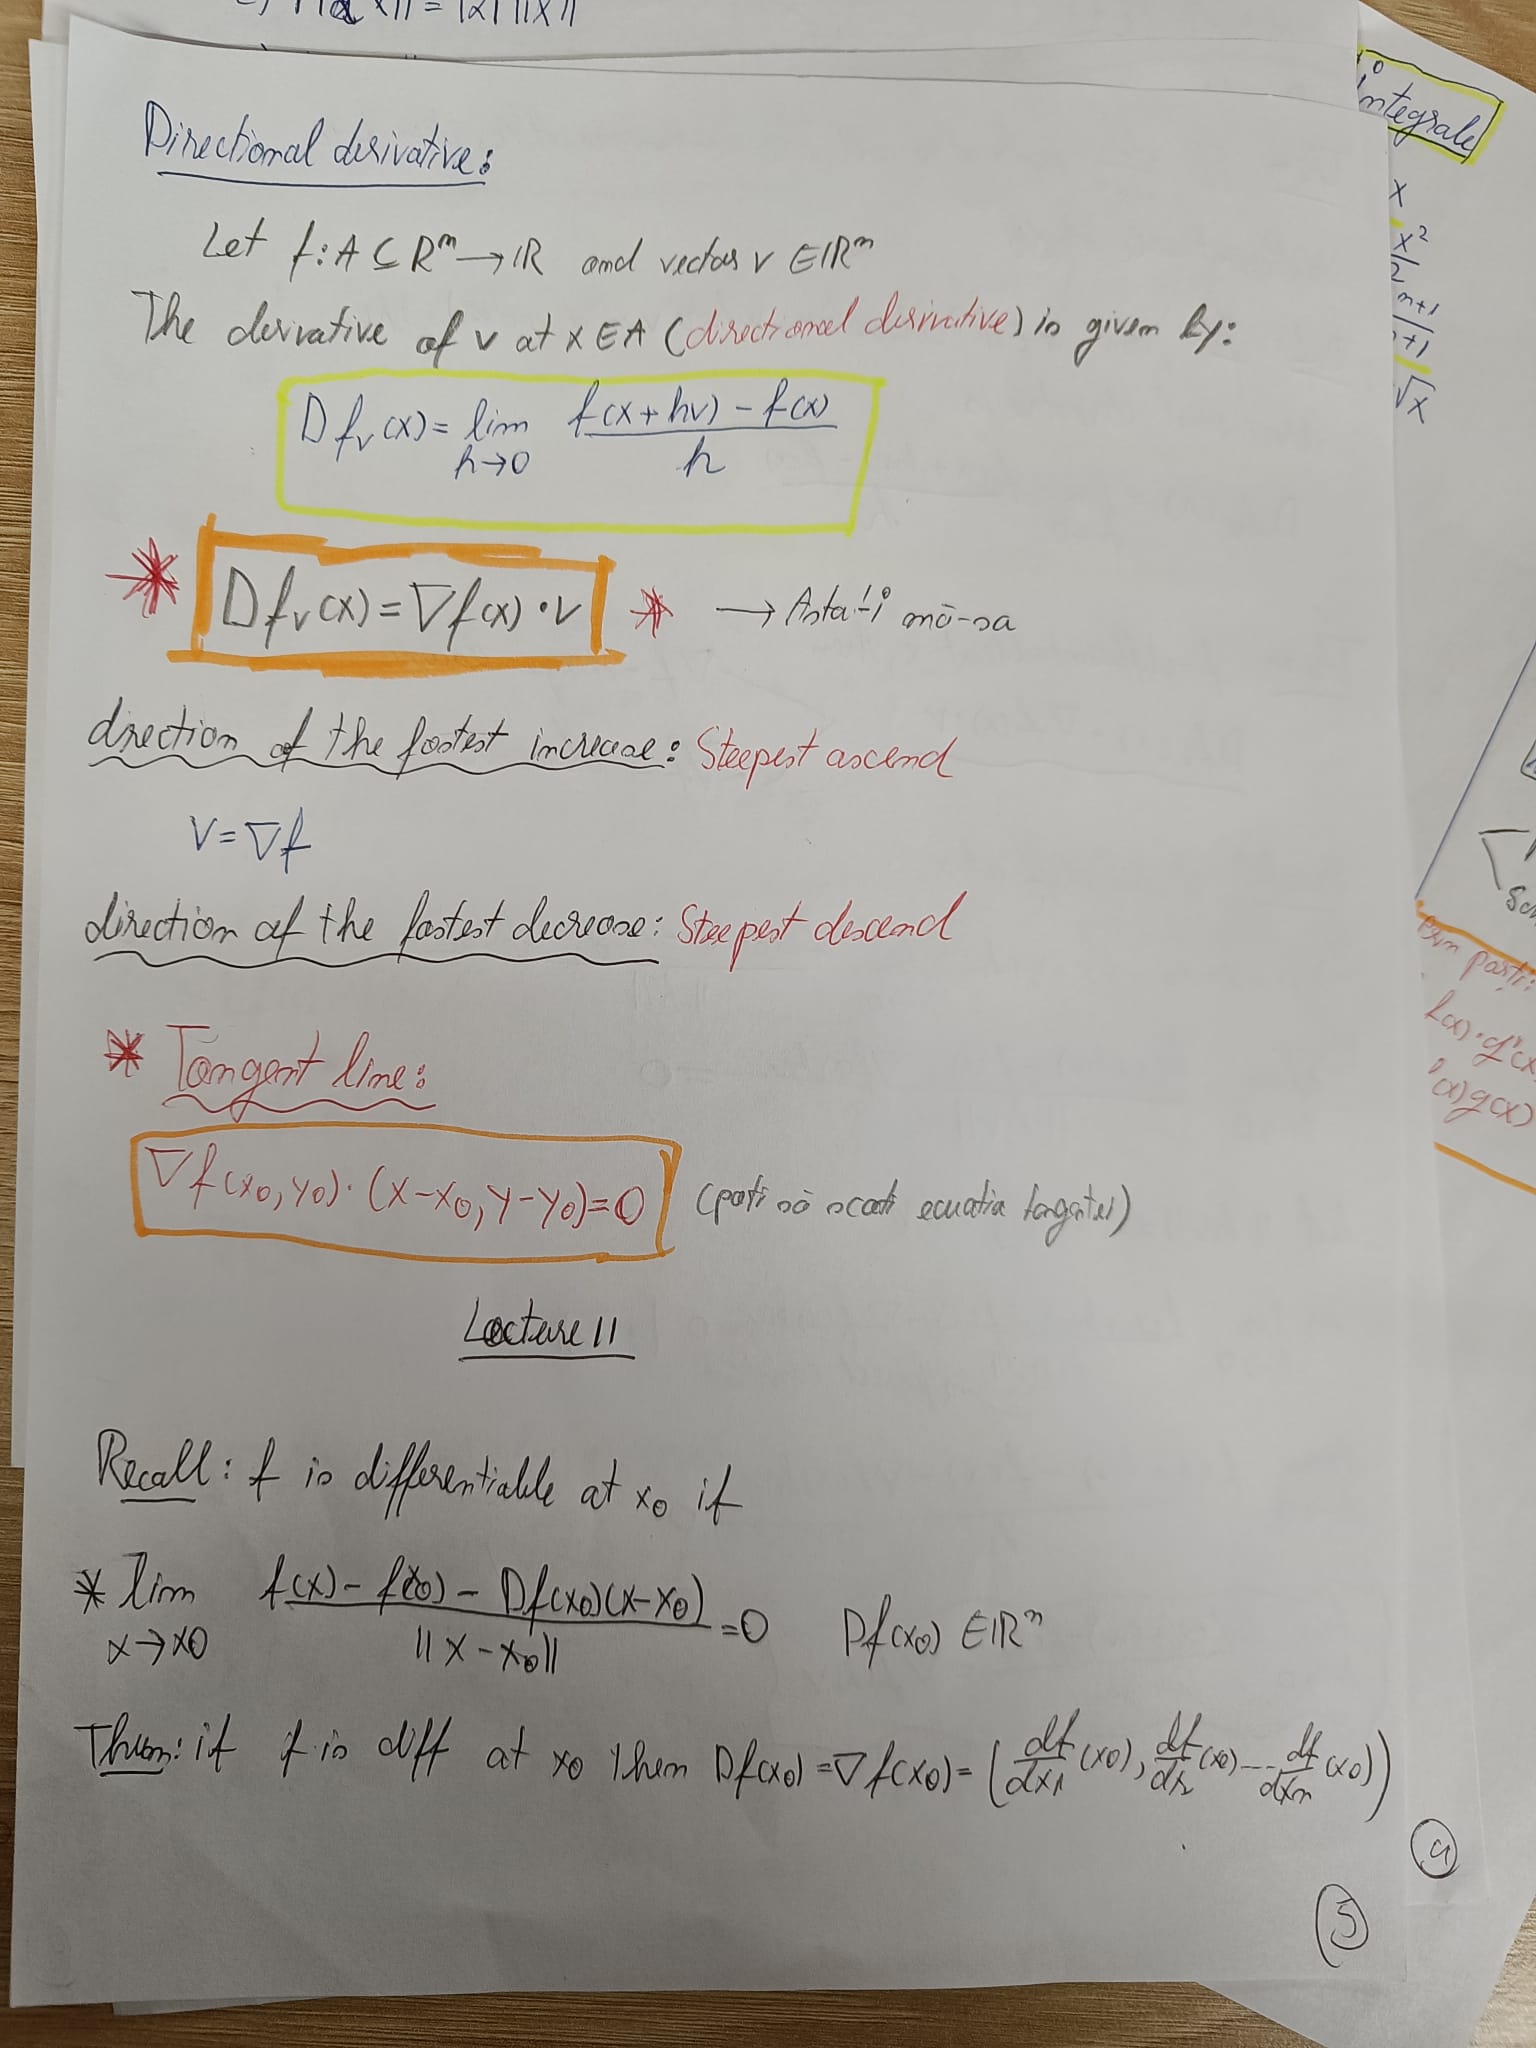 2) ||αx|| = |α| ||x||
Directional derivative:
Let f: A ⊆ R^n → IR and vector v ∈ IR^n
The derivative of v at x ∈ A (directional derivative) is given by:
D f_v (x) = lim_{h→0} \frac{f(x+hv) - f(x)}{h}
* D f_v (x) = ∇f(x) · v * → Asta-i mă-sa
direction of the fastest increase: Steepest ascend
V = ∇f
direction of the fastest decrease: Steepest descend
* Tangent line:
∇f(x0, y0) · (x-x0, y-y0) = 0 (poti să scoti ecuatia tangentei)
Lecture 11
Recall: f is differentiable at x0 if
* lim_{x→x0} \frac{f(x) - f(x0) - Df(x0)(x-x0)}{||x-x0||} = 0 Df(x0) ∈ IR^n
Thm: if f is diff at x0 then Df(x0) = ∇f(x0) = (\frac{df}{dx1}(x0), \frac{df}{dx2}(x0) --- \frac{df}{dxn}(x0))
4
5
integrale
x
\frac{x^2}{2}
n+1
+1
√x
părți:
f(x)·g'(x
'(x)g(x)